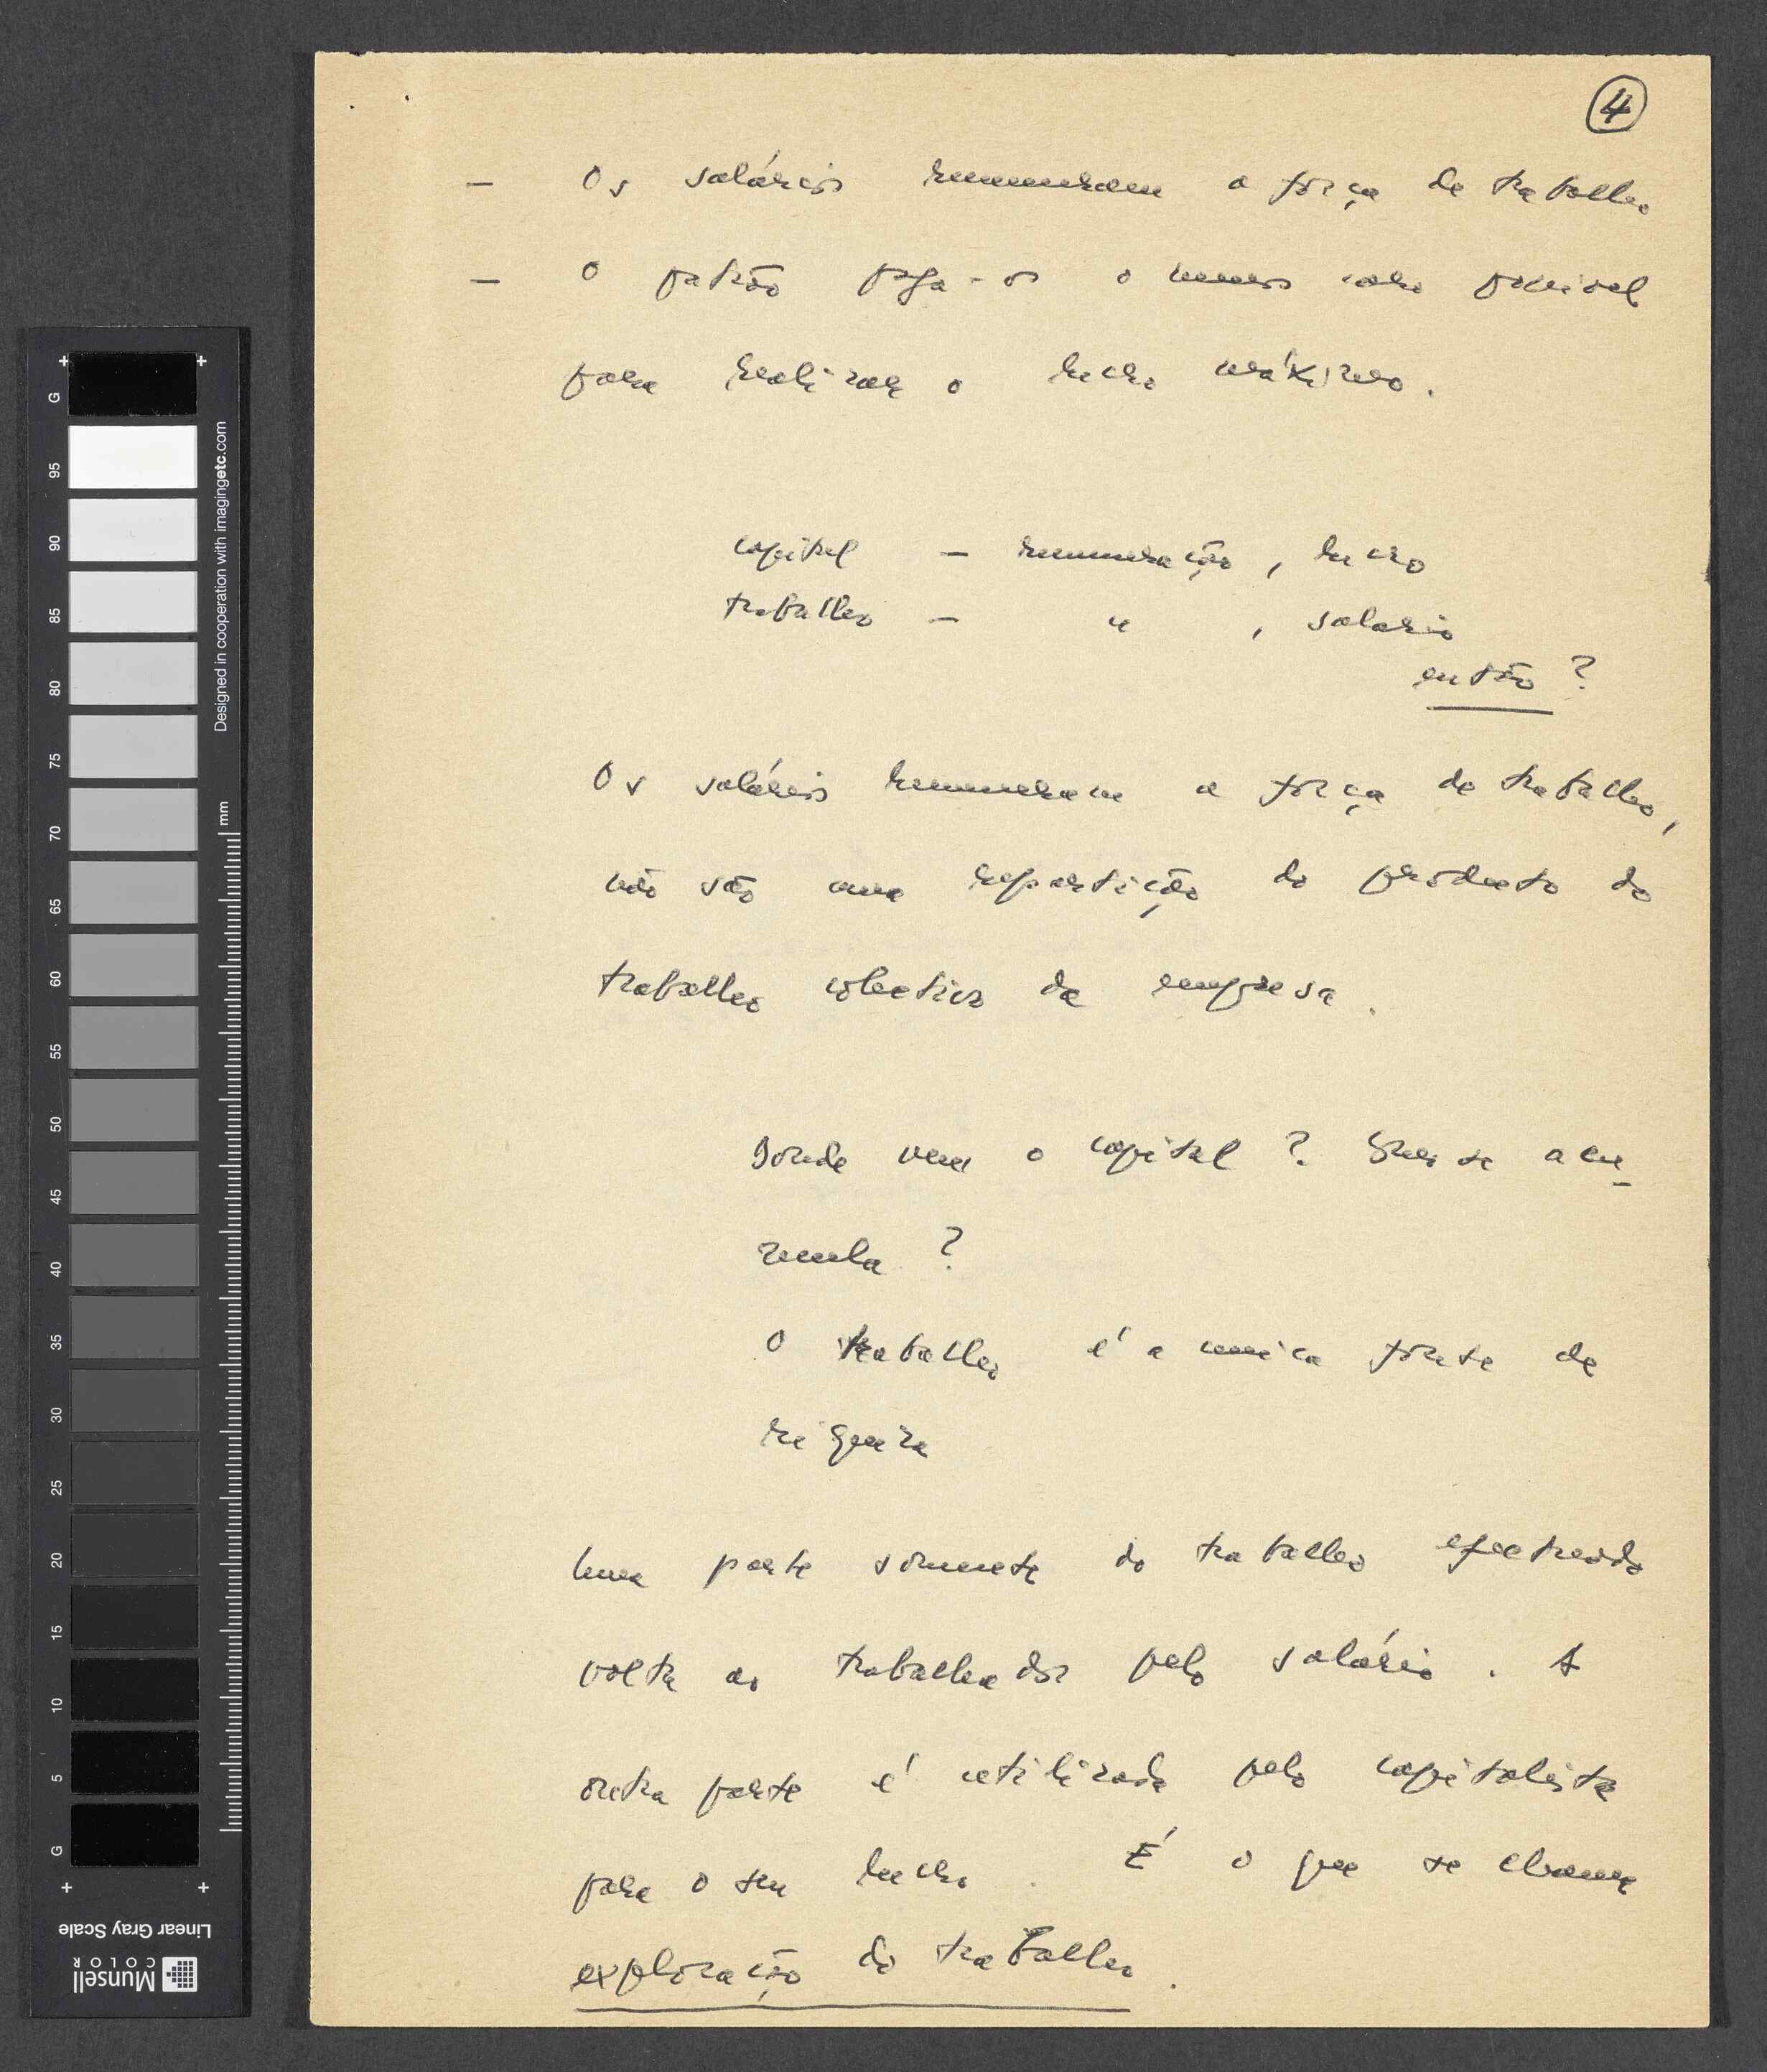 4
— Os salários remuneram a força de trabalho
— O patrão paga-os o menos caro possivel
para realizar o lucro máximo.
capital — remuneração, lucro
trabalho — " , salario
então?
Os salários remuneram a força de trabalho,
não são uma repartição do producto do
trabalho colectivo da empresa.
Donde vem o capital? Quem se acu-
mula?
O trabalho é a unica fonte de
riqueza
Uma parte sòmente do trabalho efectuado
volta ao trabalhador pelo salário. A
outra parte é utilizada pelo capitalista
para o seu lucro. É o que se chama
exploração do trabalho.
G
95
90
85
80
75
70
65
60
55
50
45
40
35
30
25
20
15
10
5
G
mm
Designed in cooperation with imagingetc.com
Linear Gray Scale
Munsell
COLOR